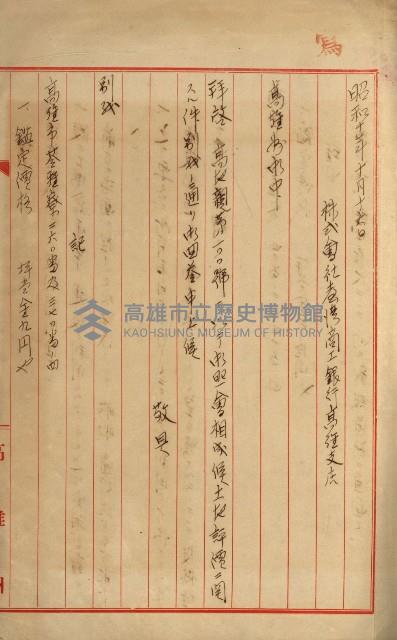 寫
昭和十年十月十六日
株式會社臺灣商工銀行高雄支店
高雄州御中
拜啓 高地觀第一〇〇號ヲ以テ御照會相成候土地評價ニ關
スル件別紙ノ通リ御回答申上候
敬具
別紙
記
高雄市苓雅寮二六〇番及三七〇番ノ四
一 鑑定價格 坪當金九円也
高雄州
高雄市立歷史博物館
KAOHSIUNG MUSEUM OF HISTORY